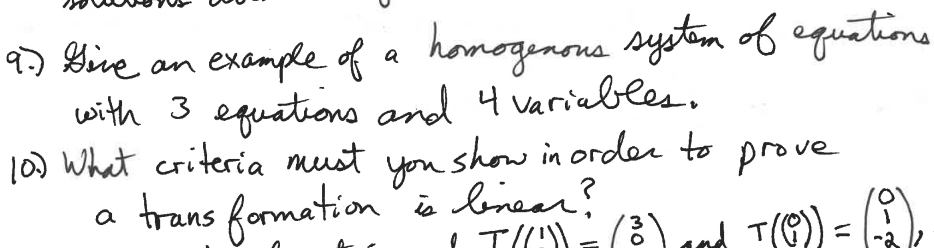 9.) Give an example of a homogenous system of equations
with 3 equations and 4 variables.
10.) What criteria must you show in order to prove
a transformation is linear?